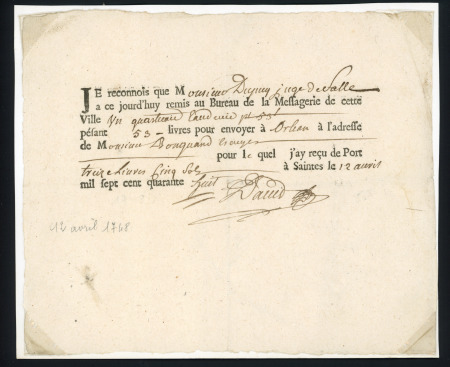 JE reconnois que Monsieur Dupuy juge de Salle
a ce jourd'huy remis au Bureau de la Messagerie de cette
Ville Un quarteau eaud evie pt 53 l
pésant 53 - livres pour envoyer à Orlean à l'adresse
de Monsieur Bouquand
pour le quel j'ay reçu de Port
treize Livres Cinq Sols à Saintes le 12 avril
mil sept cent quarante huit
David
12 avril 1748